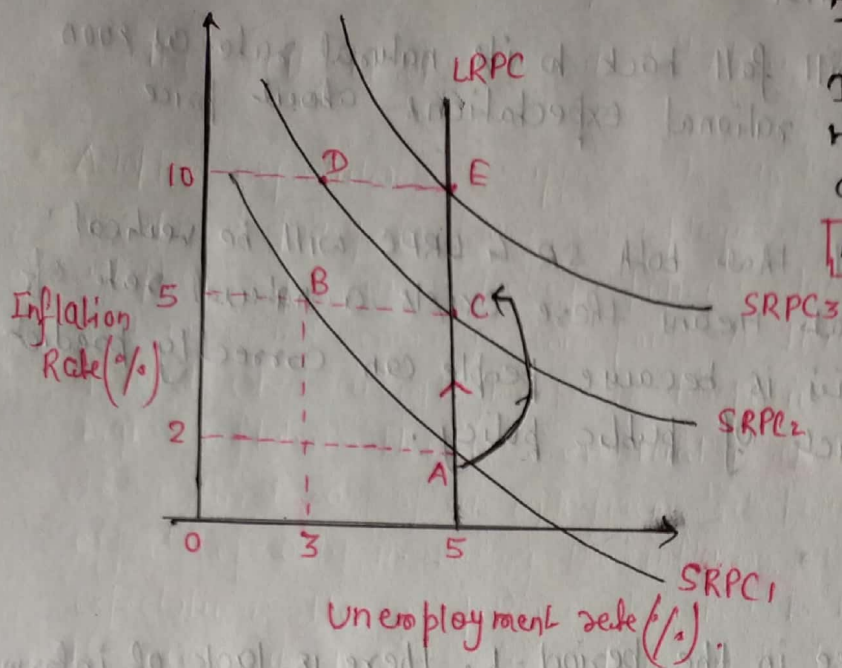 LRPC
10
D
E
5
B
C
Inflation
Rate(%)
SRPC3
SRPC2
2
A
0
3
5
SRPC1
Unemployment rate(%).